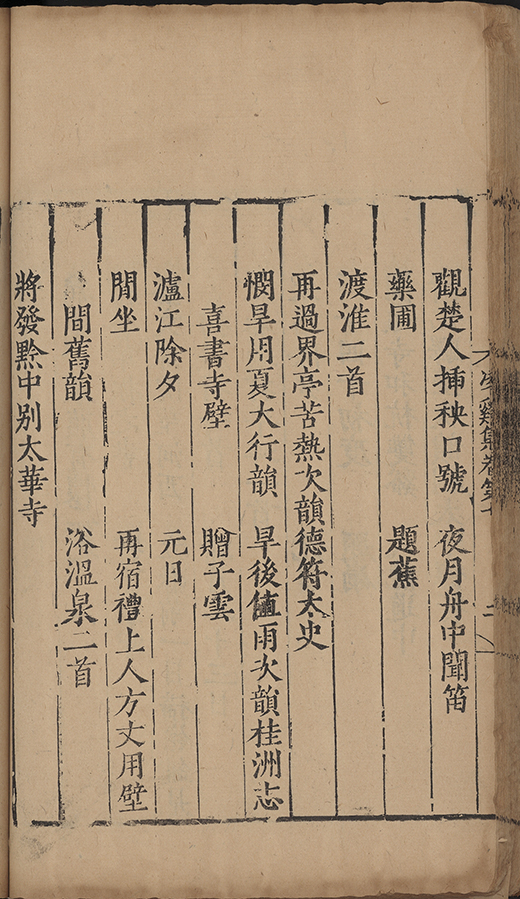 谿集卷第
二
觀楚人挿秧口號　夜月舟中聞笛
藥圃　題蕉
渡淮二首
再過界亭苦熱次韻德符太史
憫旱用夏大行韻　旱後值雨次韻桂洲志
喜書寺壁　贈子雲
瀘江除夕　元日
閒坐　再宿禮上人方丈用壁
間舊韻　浴溫泉二首
將發黔中别太華寺